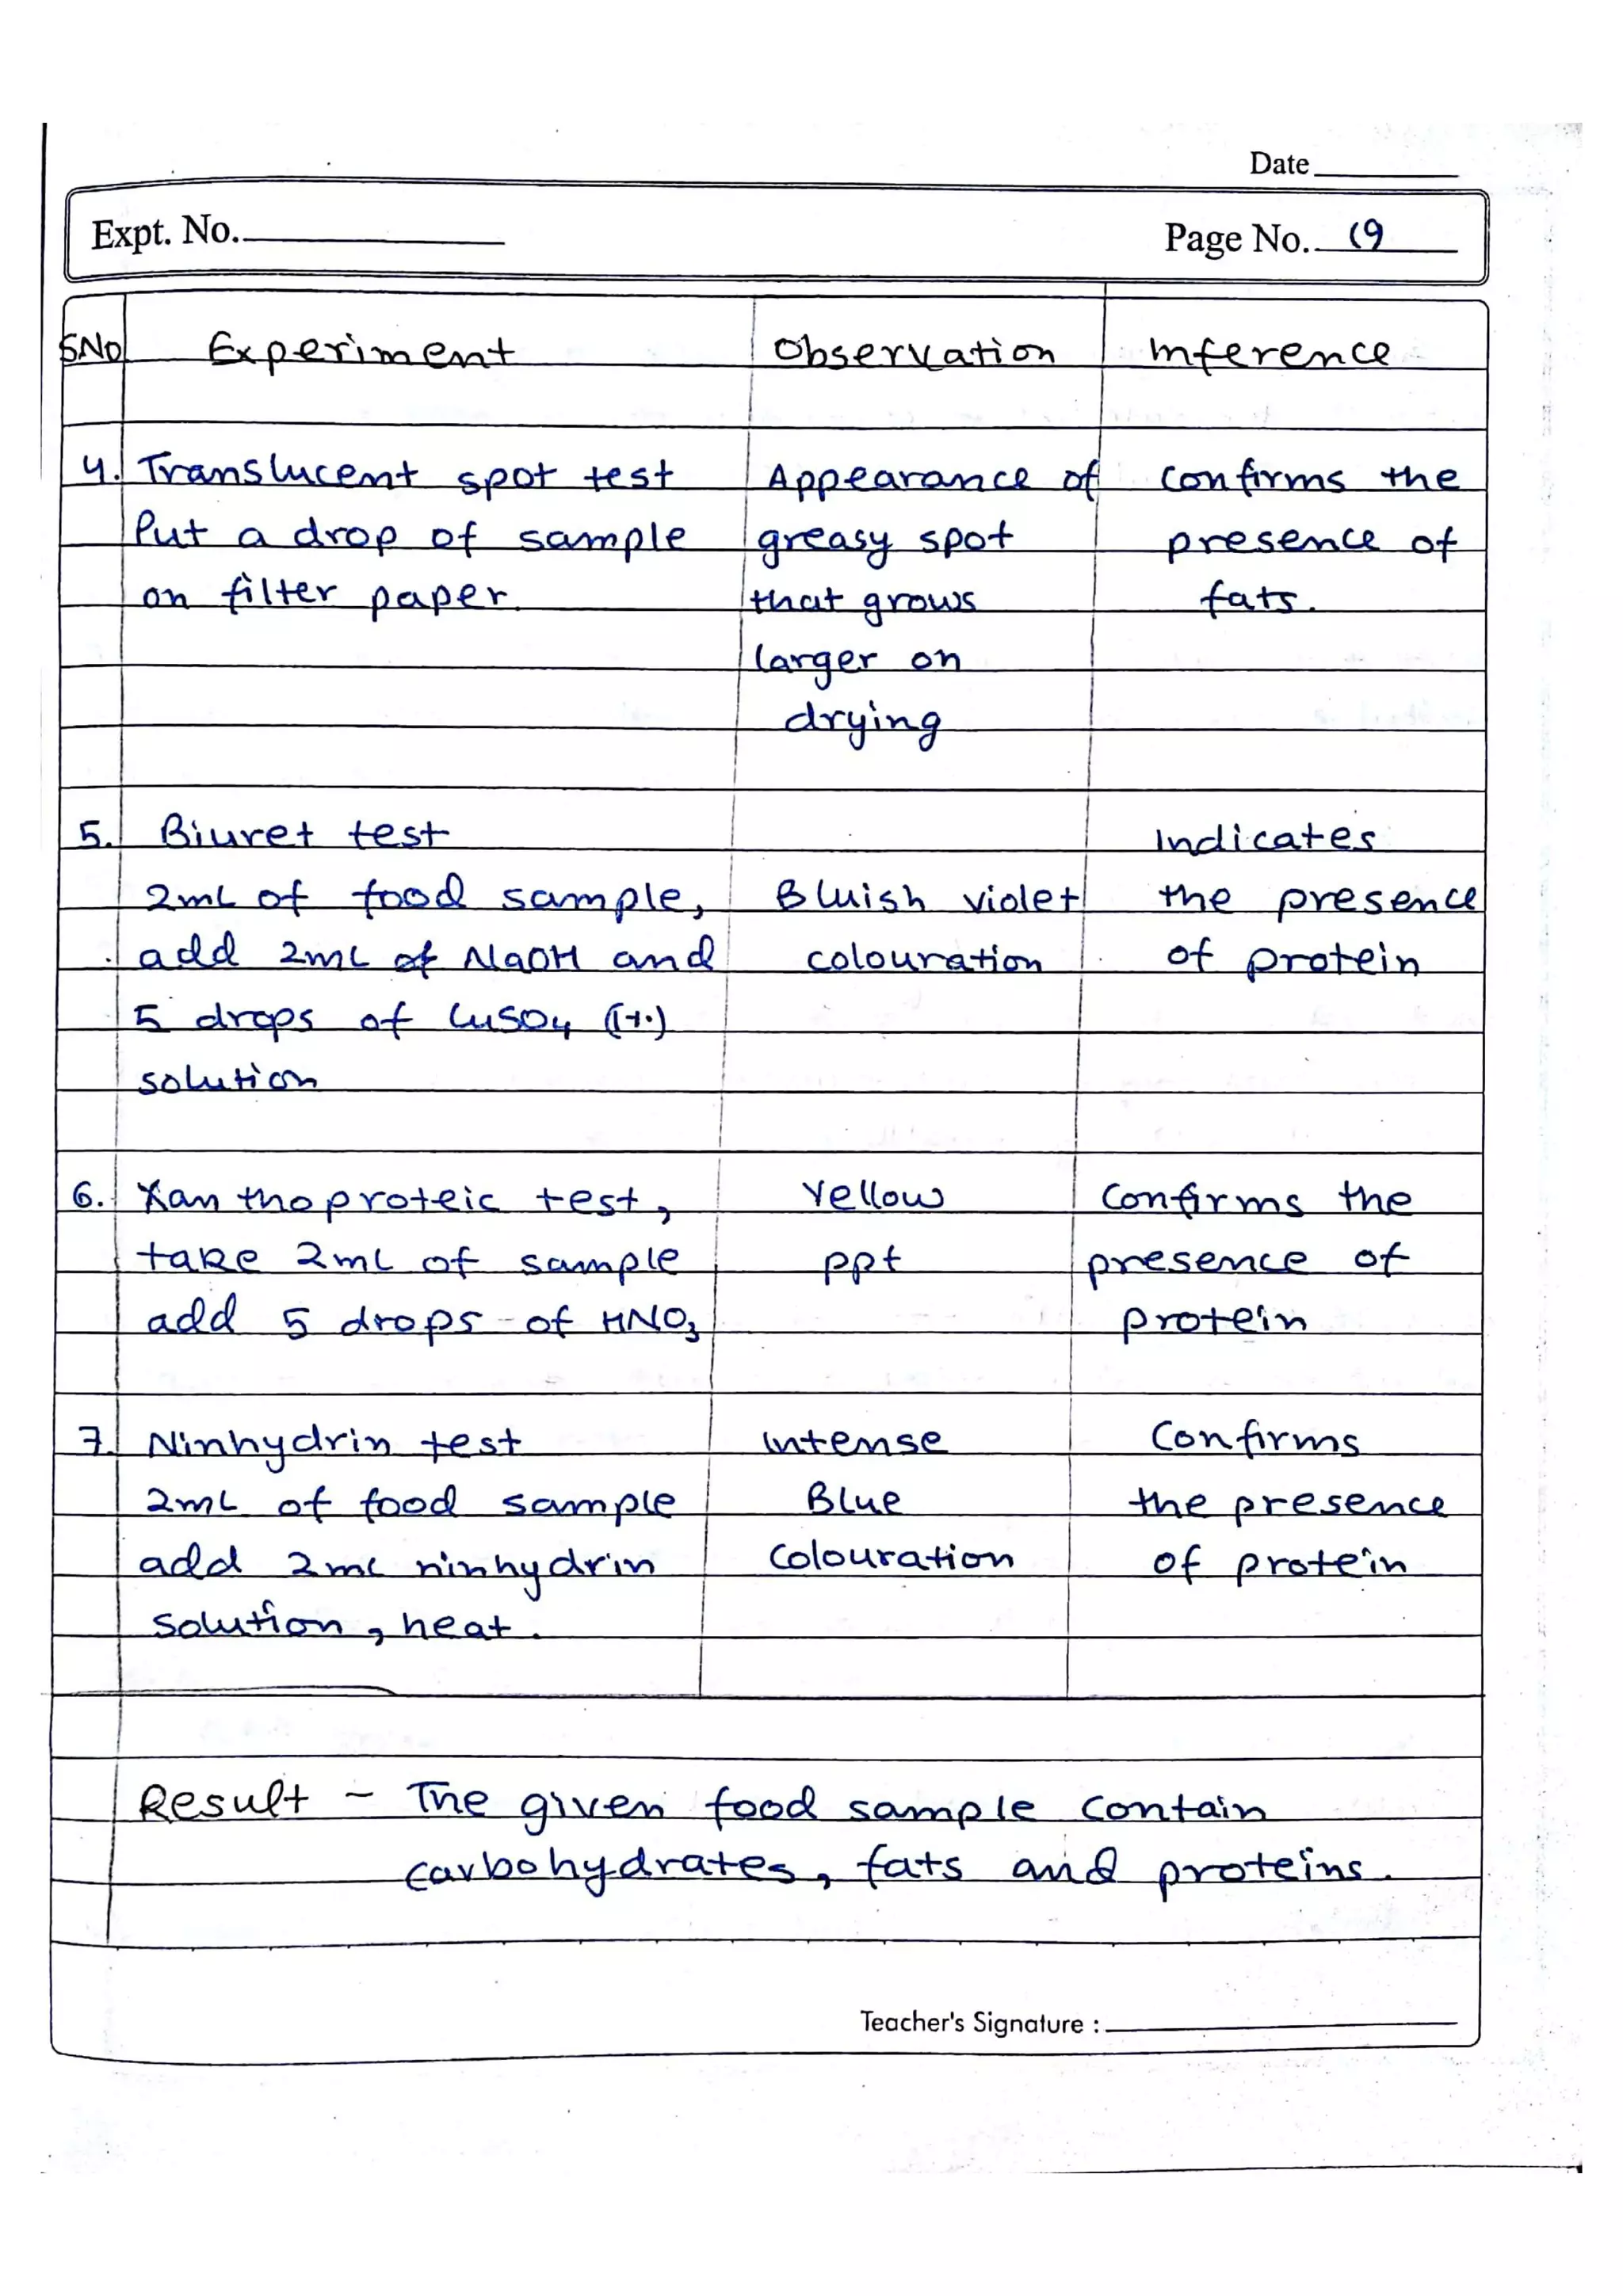 Date
Expt. No.
Page No. 19
SNo Experiment Observation Inference
4. Translucent spot test Appearance of confirms the
Put a drop of sample greasy spot presence of
on filter paper. that grows fats.
larger on
drying
5. Biuret test Indicates
2mL of food sample, Bluish violet the presence
add 2mL of NaOH and colouration of protein
5 drops of CuSO4 (1%)
solution
6. Xanthoproteic test, Yellow Confirms the
take 2mL of sample ppt presence of
add 5 drops of HNO3 protein
7. Ninhydrin test Intense Confirms
2mL of food sample Blue the presence
add 2mL ninhydrin Colouration of protein
solution, heat.
Result - The given food sample contain
carbohydrates, fats and proteins.
Teacher's Signature :